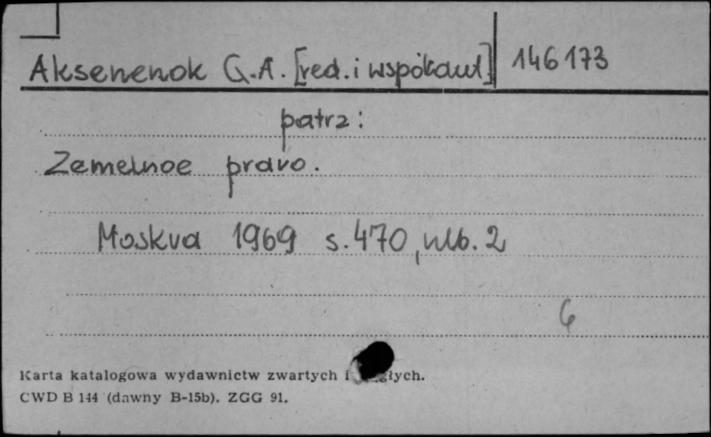 Aksenenok G.A. [red. i współaut] 146173
patrz:
Zemelnoe pravo.
Moskva 1969 s. 470, nlb. 2
6
Karta katalogowa wydawnictw zwartych i
CWD B 144 (dawny B-15b). ZGG 91.